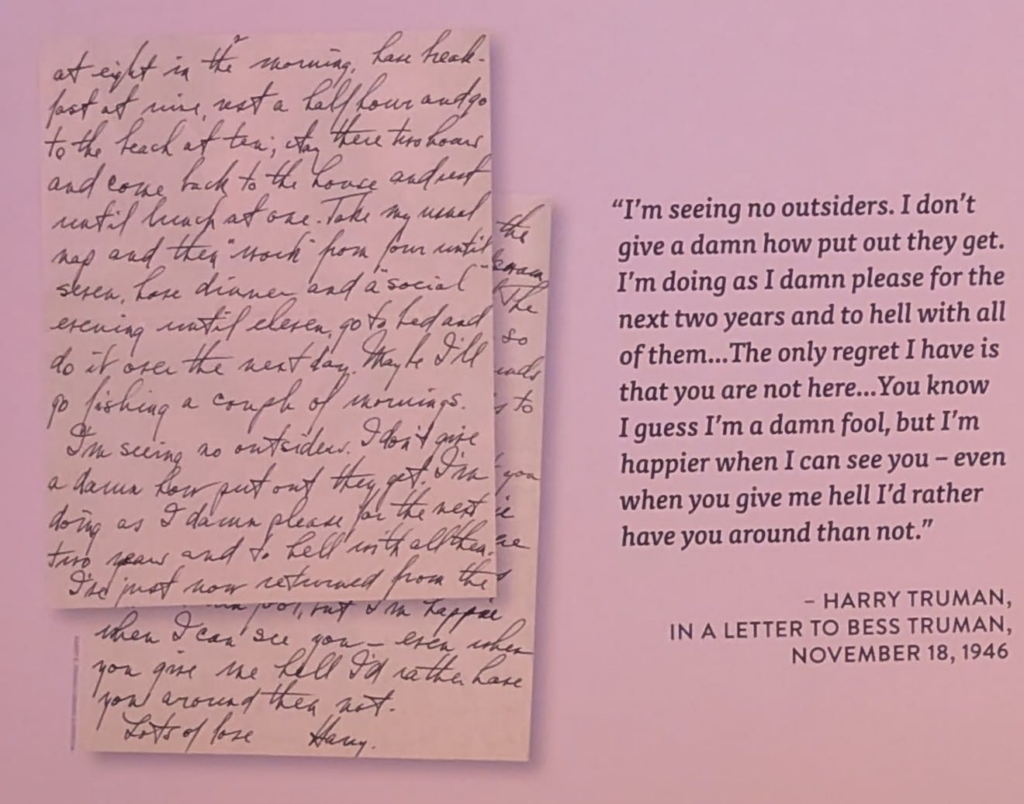 at eight in the morning, have break-
fast at nine, rest a half hour and go
to the beach at ten; stay there two hours
and come back to the house and rest
until lunch at one. Take my usual
nap and then "work" from four until
seven, have dinner and a "social"
evening until eleven, go to bed and
do it over the next day. Maybe I'll
go fishing a couple of mornings.
I'm seeing no outsiders. I don't give
a damn how put out they get. I'm
doing as I damn please for the next
two years and to hell with all them.
I've just now returned from the
the
The
so
to
you
but I'm happie
when I can see you – even when
you give me hell I'd rather have
you around then not.
Lots of love Harry.
"I'm seeing no outsiders. I don't
give a damn how put out they get.
I'm doing as I damn please for the
next two years and to hell with all
of them...The only regret I have is
that you are not here...You know
I guess I'm a damn fool, but I'm
happier when I can see you – even
when you give me hell I'd rather
have you around than not."
– HARRY TRUMAN,
IN A LETTER TO BESS TRUMAN,
NOVEMBER 18, 1946